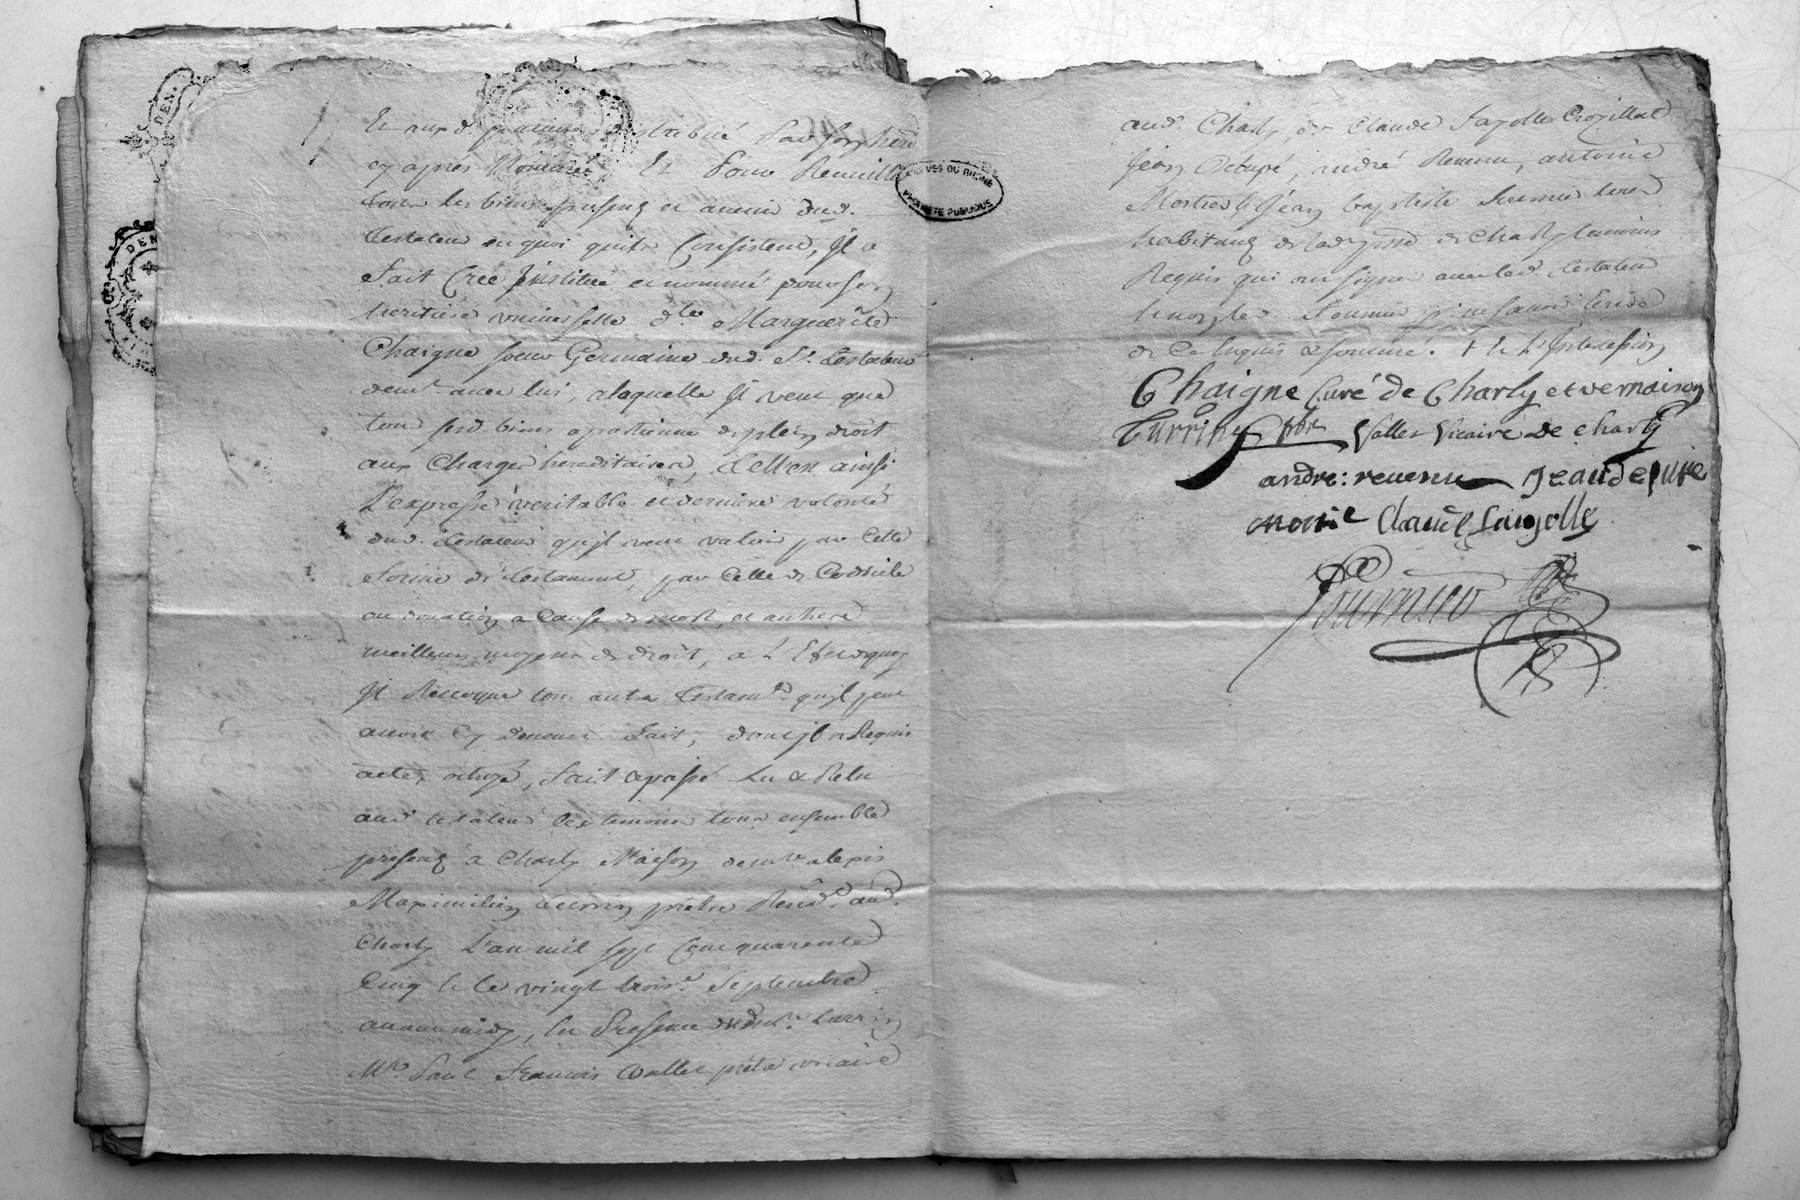 Et aux d. pauvres distribué par son herit
cy après Nommée. Et Pour Remillie
tous les biens presens et avenir dud.
testateur en quoi qu'ils Consistent, Il a
fait Créé Institué et nommé pour son
heritiere universelle dlle Marguerite
Chaigne soeur Germaine dud. Sr. testateur
demt. avec lui, a laquelle Il veut que
tous sesd. biens apartienne de plein droit
aux Charges hereditaires, Telle est ainsi
L'expresse veritable et derniere volonté
dud. testateur qu'il veut valoir par Celle
forme de testament, par Celle de Codicile
ou donation a Cause de mort, et autres
meilleurs moyens de droit, a L'Efet de quoy
Il Revoque tous autres testamts. qu'il peut
avoir Cy devant fait, dont il a Requis
acte, octroyé, fait et passé Lu & Relu
aud. testateur & es temoins tous ensemble
presens a Charly Maison de alexis
Maximilien Turrin prêtre Residt. aud.
Charly L'an mil sept Cent quarente
Cinq & le vingt troise. Septembre
avant midy, En Presence dud. Mre. Turrin
Mre. Paul Francois Vallet prêtre vicaire
aud. Charly, Sr. Claude Fayolle Crozillat
Jean Depuré, andré Revenu, antoine
Mortier & Jean baptiste tous
habitans de lad. psse. de Charly temoins
Requis qui ont signé avec led. testateur
de Ce Enquis & sommé.
Chaigne Curé de Charly et vernaison
Turrin ptre Vallet Vicaire de Charly
andre: revenu Jean depure
mortie Claude Faiyolle
Fournier
DEN.
DEN
ARCHIVES DU RHÔNE
PROPRIÉTÉ PUBLIQUE